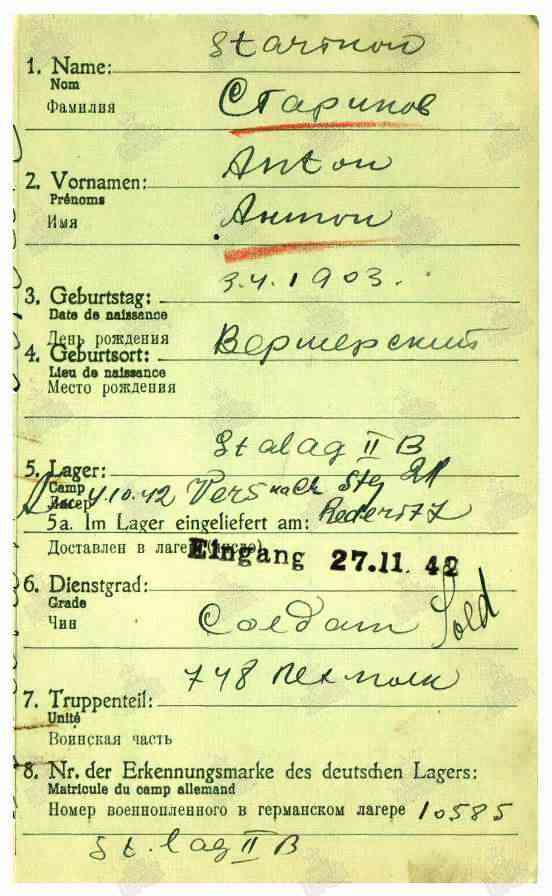 Starinow
1. Name:
Nom
Фамилия
Старинов
Anton
2. Vornamen:
Prénoms
Имя
Антон
3.4.1903.
3. Geburtstag:
Date de naissance
День рождения
4. Geburtsort:
Lieu de naissance
Место рождения
Stalag II B
5. Lager:
Camp
Лагерь
4.10.42 Vers nach
5a. Im Lager eingeliefert am: Rederitz
Доставлен в лагерь (число)
Eingang 27.11. 42
6. Dienstgrad:
Grade
Чин
Солдат Sold
748 пехполк
7. Truppenteil:
Unité
Воинская часть
8. Nr. der Erkennungsmarke des deutschen Lagers:
Matricule du camp allemand
Номер военнопленного в германском лагере 10585
St.lag II B